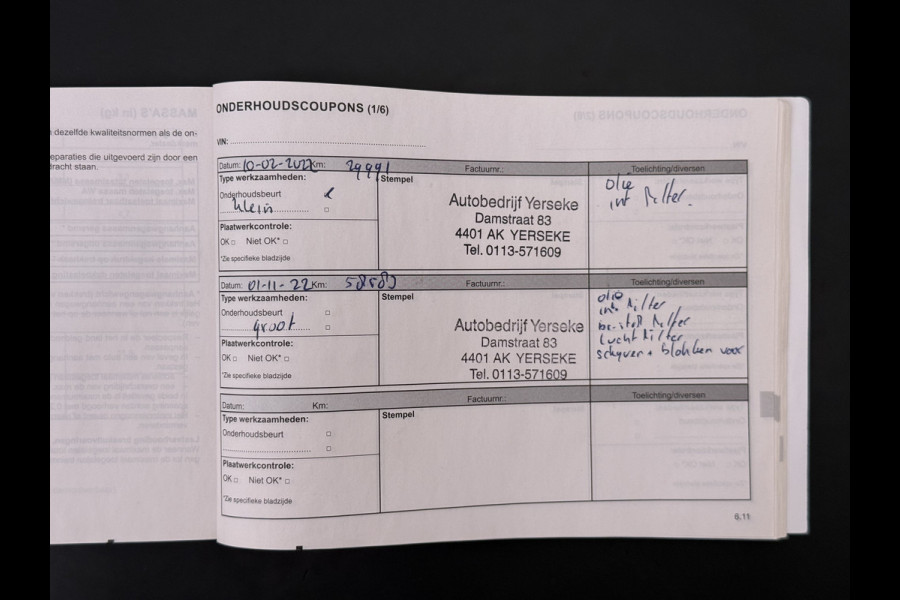 dezelfde kwaliteitsnormen als de on-
eparaties die uitgevoerd zijn door een
racht staan.
ONDERHOUDSCOUPONS (1/6)
VIN:
Datum: 10-02-2022 Km: 29991 Factuurnr.: Toelichting/diversen
Type werkzaamheden:
Stempel
Onderhoudsbeurt
Klein
Plaatwerkcontrole:
OK Niet OK*
*Zie specifieke bladzijde
Autobedrijf Yerseke
Damstraat 83
4401 AK YERSEKE
Tel. 0113-571609
olie
int filter.
Datum: 01-11-22 Km: Factuurnr.: Toelichting/diversen
Type werkzaamheden:
Stempel
Onderhoudsbeurt
Groot
Plaatwerkcontrole:
OK Niet OK*
*Zie specifieke bladzijde
Autobedrijf Yerseke
Damstraat 83
4401 AK YERSEKE
Tel. 0113-571609
olie
int filter
filter
lucht filter
schyven + blokken voor
Datum: Km: Factuurnr.: Toelichting/diversen
Type werkzaamheden:
Stempel
Onderhoudsbeurt
Plaatwerkcontrole:
OK Niet OK*
*Zie specifieke bladzijde
6.11